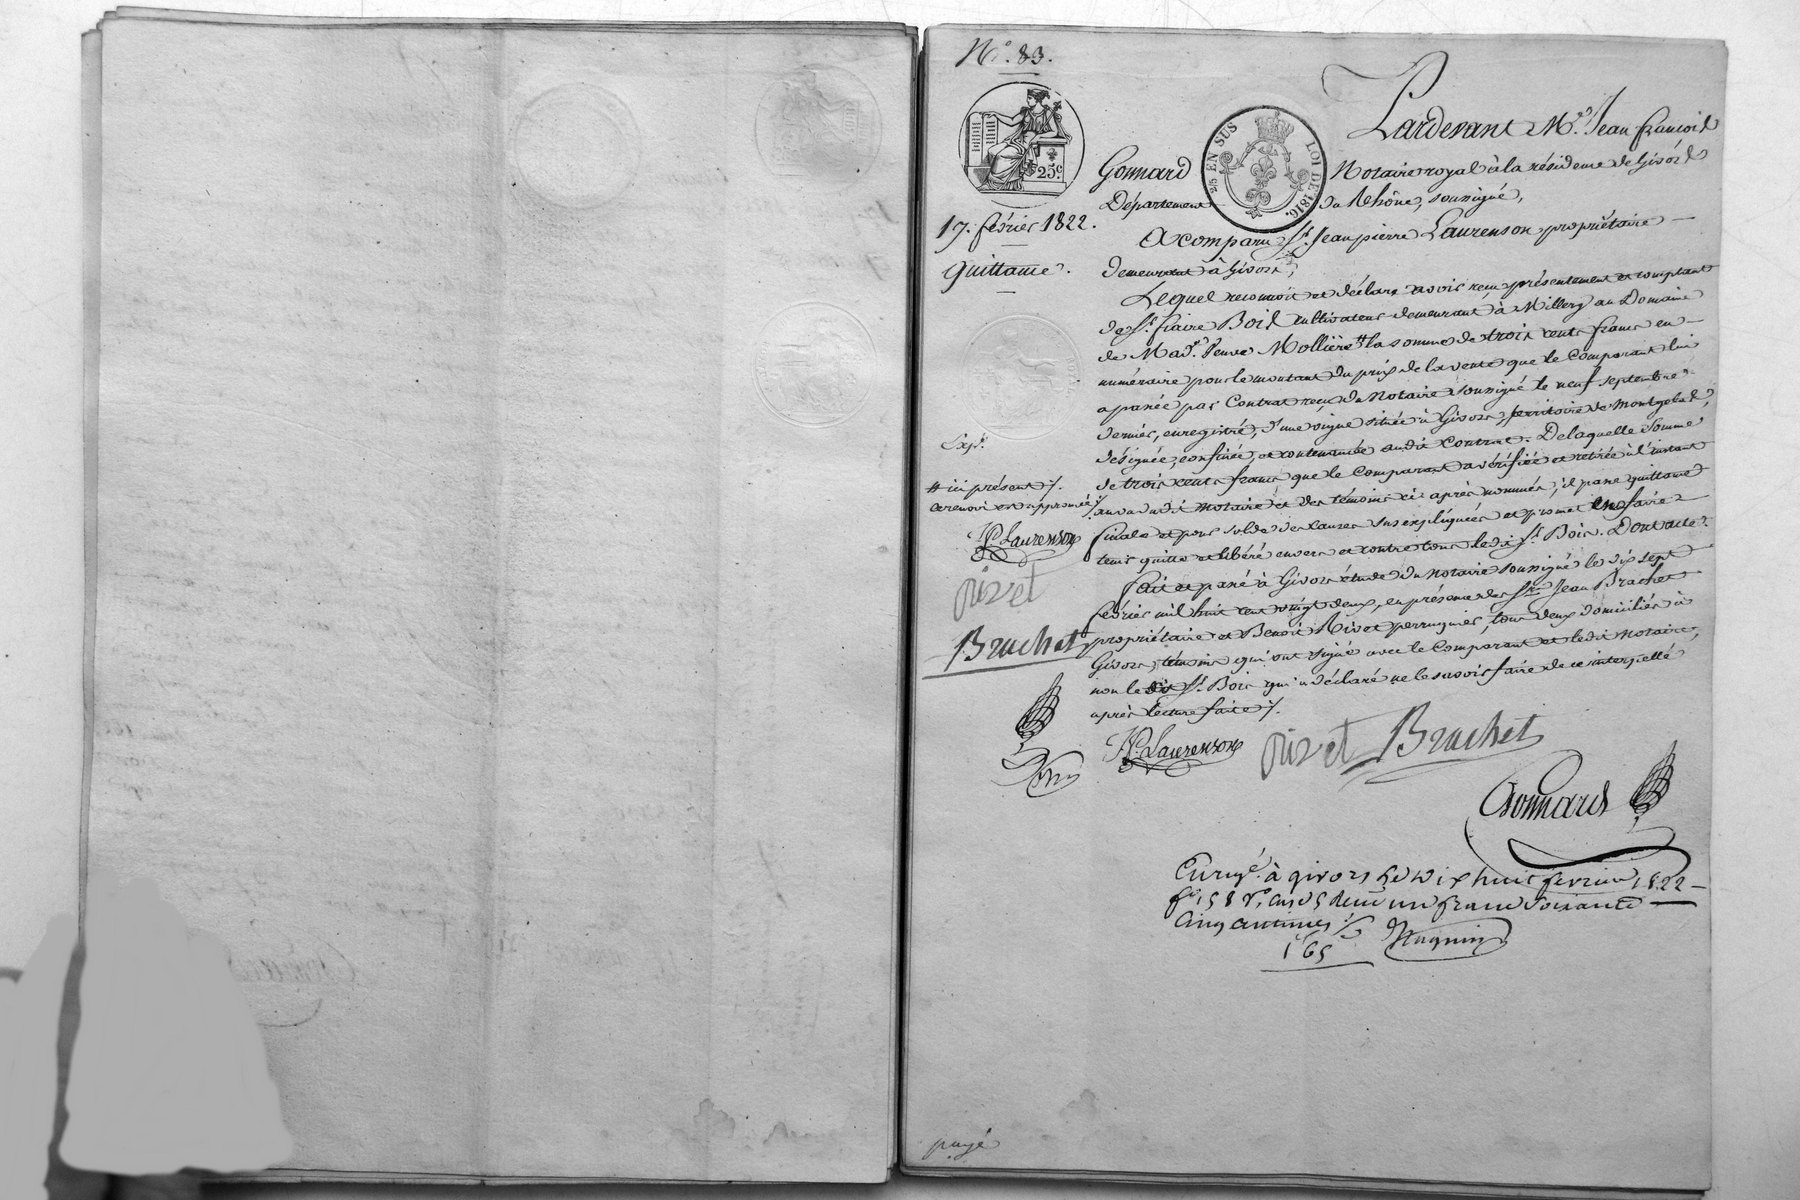 N.° 83.
25 EN SUS
LOI DE 1816.
25c.
17. février 1822.
Quittance.
Pardevant M.e Jean françois
Gonnard Notaire royal à la résidence de Givors
Département du Rhône, soussigné,
A comparu S.r Jean pierre Laurenson propriétaire
demeurant à Givors,
Lequel reconnoit et déclare avoir reçu présentement et comptant
de S.r fiaire Bois cultivateur demeurant à Millery au Domaine
de Mad.e veuve Mollière # la somme de trois cents francs en
numéraire pour le montant du prix de la vente que le Comparant lui
a passée par Contrat reçu du Notaire soussigné le neuf septembre
dernier, enregistré, d'une vigne située à Givors, territoire de Montgelas,
désignée, confinée, et contenancée audit Contrat. De laquelle somme
de trois cents francs que le Comparant a vérifiée et retirée à l'instant
au vu dudit Notaire et des témoins ci-après nommés, il passe quittance
finale et pour solde des causes sus expliquées et promet en faire
tenir quitte et libéré envers et contre tous ledit S.r Bois. Dont acte.
fait et passé à Givors étude du Notaire soussigné le dix sept
février mil huit cent vingt deux, en présence des S.rs Jean Brachet
propriétaire et Benoit Rivet perruquier, tous deux domiciliés à
Givors, témoins qui ont signé avec le Comparant et ledit Notaire,
non le dit S.r Bois qui a déclaré ne le savoir faire de ce interpellé
après lecture faite ./.
Exp.
# ici présent ./.
ce renvoi est approuvé ./.
JP Laurenson
rivet
Brachet
JP Laurenson
rivet
Brachet
Gonnard
Enregé. à givors le dix huit fevrier 1822
f.o 158 v.o, case 5 reçu un franc soixante
cinq centimes ./.
1.f 65
payé